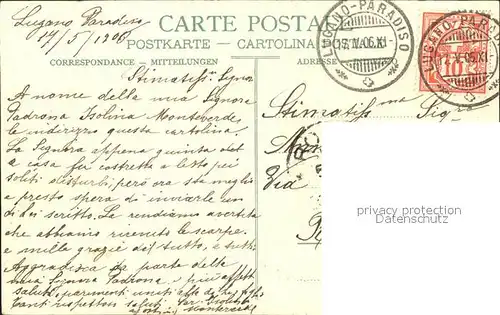 Lugano Paradiso
14/5/1906
CARTE POSTALE
POSTKARTE - CARTOLINA
CORRESPONDANCE - MITTEILUNGEN
ADRESSE
LUGANO-PARADISO
LUGANO-PARADISO
10
Stimatiss. Signor
A nome della mia Signora
Padrona Isolina Monteverde
le indirizzo questa cartolina.
La Signora appena giunta
a casa fu costretta a letto pei
soliti disturbi, però ora sta meglio
e presto spera di inviarle un
di lei scritto. Le rendiamo avvertita
che abbiamo ricevuto le scarpe
e mille grazie del tutto, e tutti.
Aggradisca da parte della
mia Signora Padrona i più affett
saluti, parimenti uniti
tanti rispettosi saluti
Stimatiss ma Sig
Via
privacy protection
www.ansichtskarten-lexikon.de